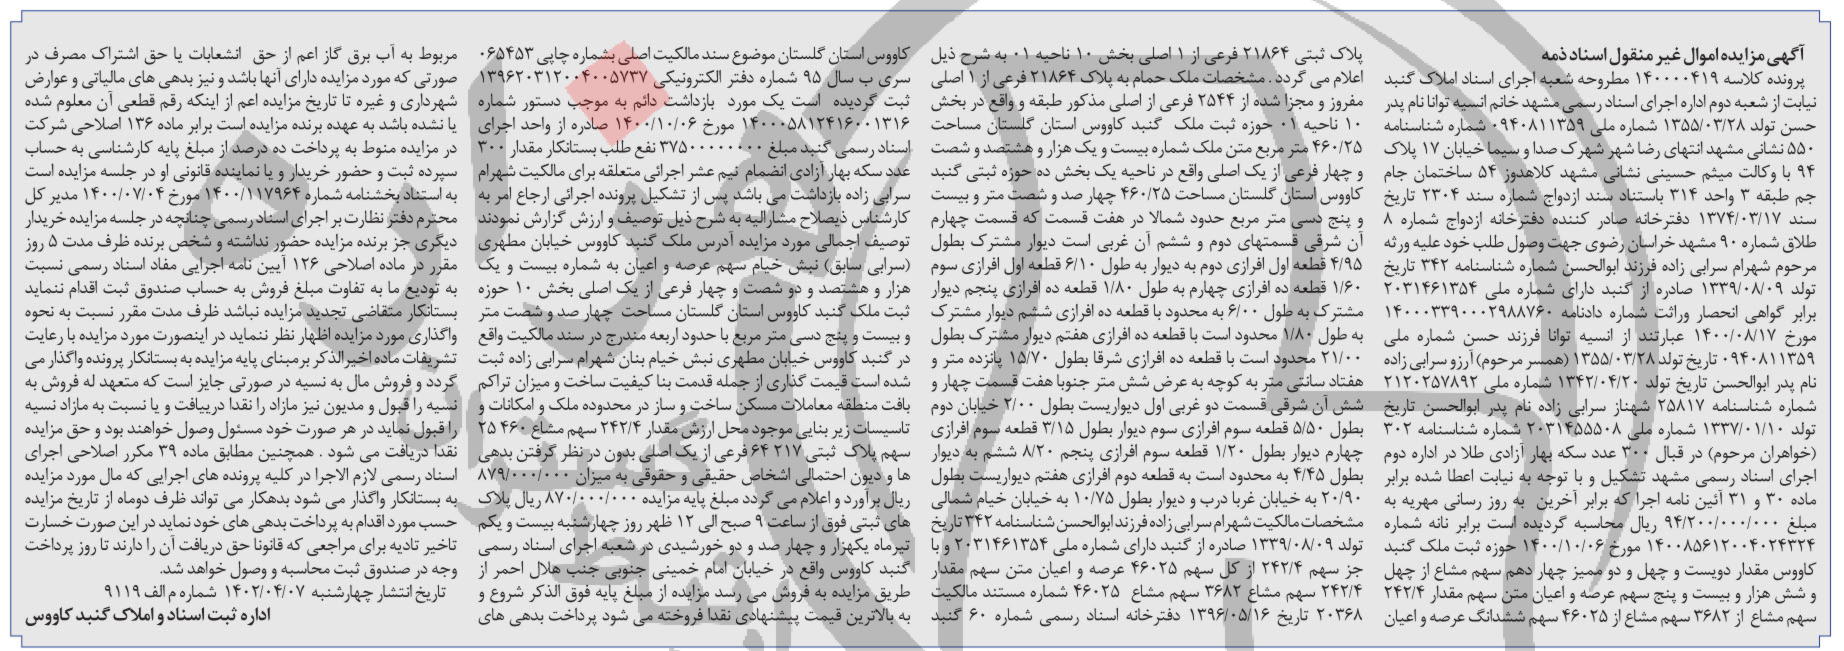 آگهی مزایده اموال غیر منقول اسناد ذمه
پرونده کلاسه ۱۴۰۰۰۰۴۱۹ مطروحه شعبه اجرای اسناد املاک گنبد
نیابت از شعبه دوم اداره اجرای اسناد رسمی مشهد خانم انسیه توانا نام پدر
حسن تولد ۱۳۵۵/۰۳/۲۸ شماره ملی ۰۹۴۰۸۱۱۳۵۹ شماره شناسنامه
۵۵۰ نشانی مشهد انتهای رضا شهر شهرک صدا و سیما خیابان ۱۷ پلاک
۹۴ با وکالت میثم حسینی نشانی مشهد کلاهدوز ۵۴ ساختمان جام
جم طبقه ۳ واحد ۳۱۴ باستناد سند ازدواج شماره سند ۲۳۰۴ تاریخ
سند ۱۳۷۴/۰۳/۱۷ دفترخانه صادر کننده دفترخانه ازدواج شماره ۸
طلاق شماره ۹۰ مشهد خراسان رضوی جهت وصول طلب خود علیه ورثه
مرحوم شهرام سرابی زاده فرزند ابوالحسن شماره شناسنامه ۳۴۲ تاریخ
تولد ۱۳۳۹/۰۸/۰۹ صادره از گنبد دارای شماره ملی ۲۰۳۱۴۶۱۳۵۴
برابر گواهی انحصار وراثت شماره دادنامه ۱۴۰۰۰۳۳۹۰۰۰۲۹۸۸۷۶۰
مورخ ۱۴۰۰/۰۸/۱۷ عبارتند از انسیه توانا فرزند حسن شماره ملی
۰۹۴۰۸۱۱۳۵۹ تاریخ تولد ۱۳۵۵/۰۳/۲۸ (همسر مرحوم) آرزو سرابی زاده
نام پدر ابوالحسن تاریخ تولد ۱۳۴۲/۰۴/۲۰ شماره ملی ۲۱۲۰۲۵۷۸۹۲
شماره شناسنامه ۲۵۸۱۷ شهناز سرابی زاده نام پدر ابوالحسن تاریخ
تولد ۱۳۳۷/۰۱/۱۰ شماره ملی ۲۰۳۱۴۵۵۵۰۸ شماره شناسنامه ۳۰۲
(خواهران مرحوم) در قبال ۳۰۰ عدد سکه بهار آزادی طلا در اداره دوم
اجرای اسناد رسمی مشهد تشکیل و با توجه به نیابت اعطا شده برابر
ماده ۳۰ و ۳۱ آئین نامه اجرا که برابر آخرین به روز رسانی مهریه به
مبلغ ۹۴/۲۰۰/۰۰۰/۰۰۰ ریال محاسبه گردیده است برابر نانه شماره
۱۴۰۰۸۵۶۱۲۰۰۴۰۲۴۳۲۴ مورخ ۱۴۰۰/۱۰/۰۶ حوزه ثبت ملک گنبد
کاووس مقدار دویست و چهل و دو ممیز چهار دهم سهم مشاع از چهل
و شش هزار و بیست و پنج سهم عرصه و اعیان متن سهم مقدار ۲۴۲/۴
سهم مشاع از ۳۶۸۲ سهم مشاع از ۴۶۰۲۵ سهم ششدانگ عرصه و اعیان
پلاک ثبتی ۲۱۸۶۴ فرعی از ۱ اصلی بخش ۱۰ ناحیه ۰۱ به شرح ذیل
اعلام می گردد. مشخصات ملک حمام به پلاک ۲۱۸۶۴ فرعی از ۱ اصلی
مفروز و مجزا شده از ۲۵۴۴ فرعی از اصلی مذکور طبقه و واقع در بخش
۱۰ ناحیه ۰۱ حوزه ثبت ملک گنبد کاووس استان گلستان مساحت
۴۶۰/۲۵ متر مربع متن ملک شماره بیست و یک هزار و هشتصد و شصت
و چهار فرعی از یک اصلی واقع در ناحیه یک بخش ده حوزه ثبتی گنبد
کاووس استان گلستان مساحت ۴۶۰/۲۵ چهار صد و شصت متر و بیست
و پنج دسی متر مربع حدود شمالا در هفت قسمت که قسمت چهارم
آن شرقی قسمتهای دوم و ششم آن غربی است دیوار مشترک بطول
۴/۹۵ قطعه اول افرازی دوم به دیوار به طول ۶/۱۰ قطعه اول افرازی سوم
۱/۶۰ قطعه ده افرازی چهارم به طول ۱/۸۰ قطعه ده افرازی پنجم دیوار
مشترک به طول ۶/۰۰ به محدود با قطعه ده افرازی ششم دیوار مشترک
به طول ۱/۸۰ محدود است با قطعه ده افرازی هفتم دیوار مشترک بطول
۲۱/۰۰ محدود است با قطعه ده افرازی شرقا بطول ۱۵/۷۰ پانزده متر و
هفتاد سانتی متر به کوچه به عرض شش متر جنوبا هفت قسمت چهار و
شش آن شرقی قسمت دو غربی اول دیواریست بطول ۲/۰۰ خیابان دوم
بطول ۵/۵۰ قطعه سوم افرازی سوم دیوار بطول ۳/۱۵ قطعه سوم افرازی
چهارم دیوار بطول ۱/۲۰ قطعه سوم افرازی پنجم ۸/۲۰ ششم به دیوار
بطول ۴/۴۵ محدود است به قطعه دوم افرازی هفتم دیواریست بطول
۲۰/۹۰ به خیابان غربا درب و دیوار بطول ۱۰/۷۵ به خیابان خیام شمالی
مشخصات مالکیت شهرام سرابی زاده فرزند ابوالحسن شناسنامه ۳۴۲ تاریخ
تولد ۱۳۳۹/۰۸/۰۹ صادره از گنبد دارای شماره ملی ۲۰۳۱۴۶۱۳۵۴ و با
جز سهم ۲۴۲/۴ از کل سهم ۴۶۰۲۵ عرصه و اعیان متن سهم مقدار
۲۴۲/۴ سهم مشاع ۳۶۸۲ سهم مشاع ۴۶۰۲۵ شماره مستند مالکیت
۲۰۳۶۸ تاریخ ۱۳۹۶/۰۵/۱۶ دفترخانه اسناد رسمی شماره ۶۰ گنبد
کاووس استان گلستان موضوع سند مالکیت اصلی بشماره چاپی ۰۶۵۴۵۳
سری ب سال ۹۵ شماره دفتر الکترونیکی ۱۳۹۶۲۰۳۱۲۰۰۴۰۰۵۷۳۷
ثبت گردیده است یک مورد بازداشت دائم به موجب دستور شماره
۱۴۰۰۰۵۸۱۲۴۱۶۰۰۱۳۱۶ مورخ ۱۴۰۰/۱۰/۰۶ صادره از واحد اجرای
اسناد رسمی گنبد مبلغ ۳۷۵۰۰۰۰۰۰۰۰ نفع طلب بستانکار مقدار ۳۰۰
عدد سکه بهار آزادی انضمام نیم عشر اجرائی متعلقه برای مالکیت شهرام
سرابی زاده بازداشت می باشد پس از تشکیل پرونده اجرائی ارجاع امر به
کارشناس ذیصلاح مشارالیه به شرح ذیل توصیف و ارزش گزارش نمودند
توصیف اجمالی مورد مزایده آدرس ملک گنبد کاووس خیابان مطهری
(سرابی سابق) نبش خیام سهم عرصه و اعیان به شماره بیست و یک
هزار و هشتصد و دو شصت و چهار فرعی از یک اصلی بخش ۱۰ حوزه
ثبت ملک گنبد کاووس استان گلستان مساحت چهار صد و شصت متر
و بیست و پنج دسی متر مربع با حدود اربعه مندرج در سند مالکیت واقع
در گنبد کاووس خیابان مطهری نبش خیام بنان شهرام سرابی زاده ثبت
شده است قیمت گذاری از جمله قدمت بنا کیفیت ساخت و میزان تراکم
بافت منطقه معاملات مسکن ساخت و ساز در محدوده ملک و امکانات و
تاسیسات زیر بنایی موجود محل ارزش مقدار ۲۴۲/۴ سهم مشاع ۴۶۰ ۲۵
سهم پلاک ثبتی ۲۱۷ ۶۴ فرعی از یک اصلی بدون در نظر گرفتن بدهی
ها و دیون احتمالی اشخاص حقیقی و حقوقی به میزان ۸۷۹/۰۰۰/۰۰۰
ریال برآورد و اعلام می گردد مبلغ پایه مزایده ۸۷۰/۰۰۰/۰۰۰ ریال پلاک
های ثبتی فوق از ساعت ۹ صبح الی ۱۲ ظهر روز چهارشنبه بیست و یکم
تیرماه یکهزار و چهار صد و دو خورشیدی در شعبه اجرای اسناد رسمی
گنبد کاووس واقع در خیابان امام خمینی جنوبی جنب هلال احمر از
طریق مزایده به فروش می رسد مزایده از مبلغ پایه فوق الذکر شروع و
به بالاترین قیمت پیشنهادی نقدا فروخته می شود پرداخت بدهی های
مربوط به آب برق گاز اعم از حق انشعابات یا حق اشتراک مصرف در
صورتی که مورد مزایده دارای آنها باشد و نیز بدهی های مالیاتی و عوارض
شهرداری و غیره تا تاریخ مزایده اعم از اینکه رقم قطعی آن معلوم شده
یا نشده باشد به عهده برنده مزایده است برابر ماده ۱۳۶ اصلاحی شرکت
در مزایده منوط به پرداخت ده درصد از مبلغ پایه کارشناسی به حساب
سپرده ثبت و حضور خریدار و یا نماینده قانونی او در جلسه مزایده است
به استناد بخشنامه شماره ۱۴۰۰/۱۱۷۹۶۴ مورخ ۱۴۰۰/۰۷/۰۴ مدیر کل
محترم دفتر نظارت بر اجرای اسناد رسمی چنانچه در جلسه مزایده خریدار
دیگری جز برنده مزایده حضور نداشته و شخص برنده ظرف مدت ۵ روز
مقرر در ماده اصلاحی ۱۲۶ آیین نامه اجرایی مفاد اسناد رسمی نسبت
به تودیع ما به تفاوت مبلغ فروش به حساب صندوق ثبت اقدام ننماید
بستانکار متقاضی تجدید مزایده نباشد ظرف مدت مقرر نسبت به نحوه
واگذاری مورد مزایده اظهار نظر ننماید در اینصورت مورد مزایده با رعایت
تشریفات ماده اخیر الذکر بر مبنای پایه مزایده به بستانکار پرونده واگذار می
گردد و فروش مال به نسیه در صورتی جایز است که متعهد له فروش به
نسیه را قبول و مدیون نیز مازاد را نقدا دریبافت و یا نسبت به مازاد نسیه
را قبول نماید در هر صورت خود مسئول وصول خواهند بود و حق مزایده
نقدا دریافت می شود . همچنین مطابق ماده ۳۹ مکرر اصلاحی اجرای
اسناد رسمی لازم الاجرا در کلیه پرونده های اجرایی که مال مورد مزایده
به بستانکار واگذار می شود بدهکار می تواند ظرف دوماه از تاریخ مزایده
حسب مورد اقدام به پرداخت بدهی های خود نماید در این صورت خسارت
تاخیر تادیه برای مراجعی که قانونا حق دریافت آن را دارند تا روز پرداخت
وجه در صندوق ثبت محاسبه و وصول خواهد شد.
تاریخ انتشار چهارشنبه ۱۴۰۲/۰۴/۰۷ شماره م الف ۹۱۱۹
اداره ثبت اسناد و املاک گنبد کاووس